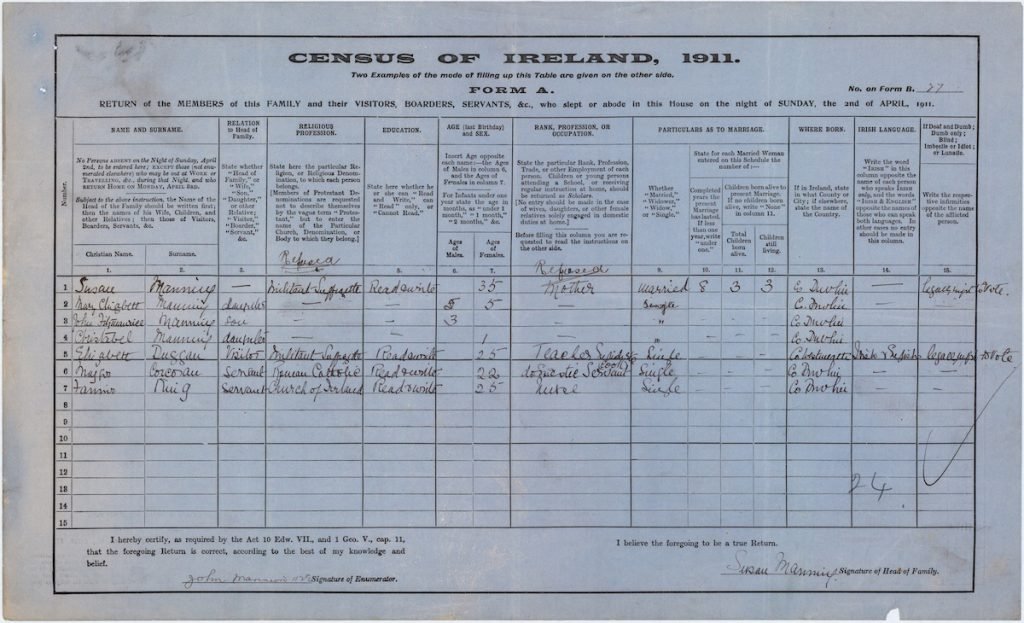 CENSUS OF IRELAND, 1911.
Two Examples of the mode of filling up this Table are given on the other side.
FORM A.
No. on Form B. 27
RETURN of the MEMBERS of this FAMILY and their VISITORS, BOARDERS, SERVANTS, &c., who slept or abode in this House on the night of SUNDAY, the 2nd of APRIL, 1911.
Number.
NAME AND SURNAME.
No Persons ABSENT on the Night of Sunday, April 2nd, to be entered here; EXCEPT those (not enumerated elsewhere) who may be out at WORK or TRAVELLING, &c., during that Night, and who RETURN HOME ON MONDAY, APRIL 3RD.
Subject to the above instruction, the Name of the Head of the Family should be written first; then the names of his Wife, Children, and other Relatives; then those of Visitors, Boarders, Servants, &c.
Christian Name. Surname.
RELATION to Head of Family.
State whether "Head of Family," or "Wife," "Son," "Daughter," or other Relative; "Visitor," "Boarder," "Servant," &c.
RELIGIOUS PROFESSION.
State here the particular Religion, or Religious Denomination, to which each person belongs.
[Members of Protestant Denominations are requested not to describe themselves by the vague term "Protestant," but to enter the name of the Particular Church, Denomination, or Body to which they belong.]
Refused
EDUCATION.
State here whether he or she can "Read and Write," can "Read" only, or "Cannot Read."
AGE (last Birthday) and SEX.
Insert Age opposite each name:—the Ages of Males in column 6, and the Ages of Females in column 7.
For Infants under one year state the age in months, as "under 1 month," "1 month," "2 months," &c.
Ages of Males. Ages of Females.
RANK, PROFESSION, OR OCCUPATION.
State the particular Rank, Profession, Trade, or other Employment of each person. Children or young persons attending a School, or receiving regular instruction at home, should be returned as Scholars.
[No entry should be made in the case of wives, daughters, or other female relatives solely engaged in domestic duties at home.]
Before filling this column you are requested to read the instructions on the other side.
Refused
PARTICULARS AS TO MARRIAGE.
Whether "Married," "Widower," "Widow," or "Single."
State for each Married Woman entered on this Schedule the number of:—
Completed years the present Marriage has lasted. If less than one year, write "under one."
Children born alive to present Marriage. If no children born alive, write "None" in column 11.
Total Children born alive. Children still living.
WHERE BORN.
If in Ireland, state in what County or City; if elsewhere, state the name of the Country.
IRISH LANGUAGE.
Write the word "IRISH" in this column opposite the name of each person who speaks IRISH only, and the words "IRISH & ENGLISH" opposite the names of those who can speak both languages. In other cases no entry should be made in this column.
If Deaf and Dumb; Dumb only; Blind; Imbecile or Idiot; or Lunatic.
Write the respective infirmities opposite the name of the afflicted person.
1. 2. 3. 4. 5. 6. 7. 8. 9. 10. 11. 12. 13. 14. 15.
1 Susan Manning — Militant Suffragette Read & write — 35 Mother Married 8 3 3 Co Dublin — to Vote
2 Manning daughter — — 5 — Single Co. Dublin
3 John Fitzmaurice Manning son — — 3 — " Co Dublin
4 Christabel Manning daughter — — 1 — " Co Dublin
5 Elizabeth Duggan Visitor Militant Suffragette Read & write — 25 Teacher Single — — — Irish & English to Vote
6 Corcoran Servant Roman Catholic Read & write — 22 Cook domestic Servant Single — — — Co Dublin —
7 Servant Church of Ireland Read & write — 25 Nurse Single — — — Co Dublin —
8
9
10
11
12
13 24
14
15
I hereby certify, as required by the Act 10 Edw. VII., and 1 Geo. V., cap. 11, that the foregoing Return is correct, according to the best of my knowledge and belief.
John Signature of Enumerator.
I believe the foregoing to be a true Return.
Susan Manning Signature of Head of Family.